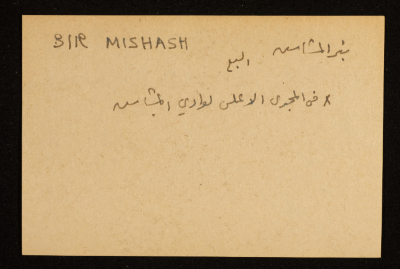 BIR MISHASH
بئر المشاش السبع
* في المجرى الاعلى لوادي المشاش